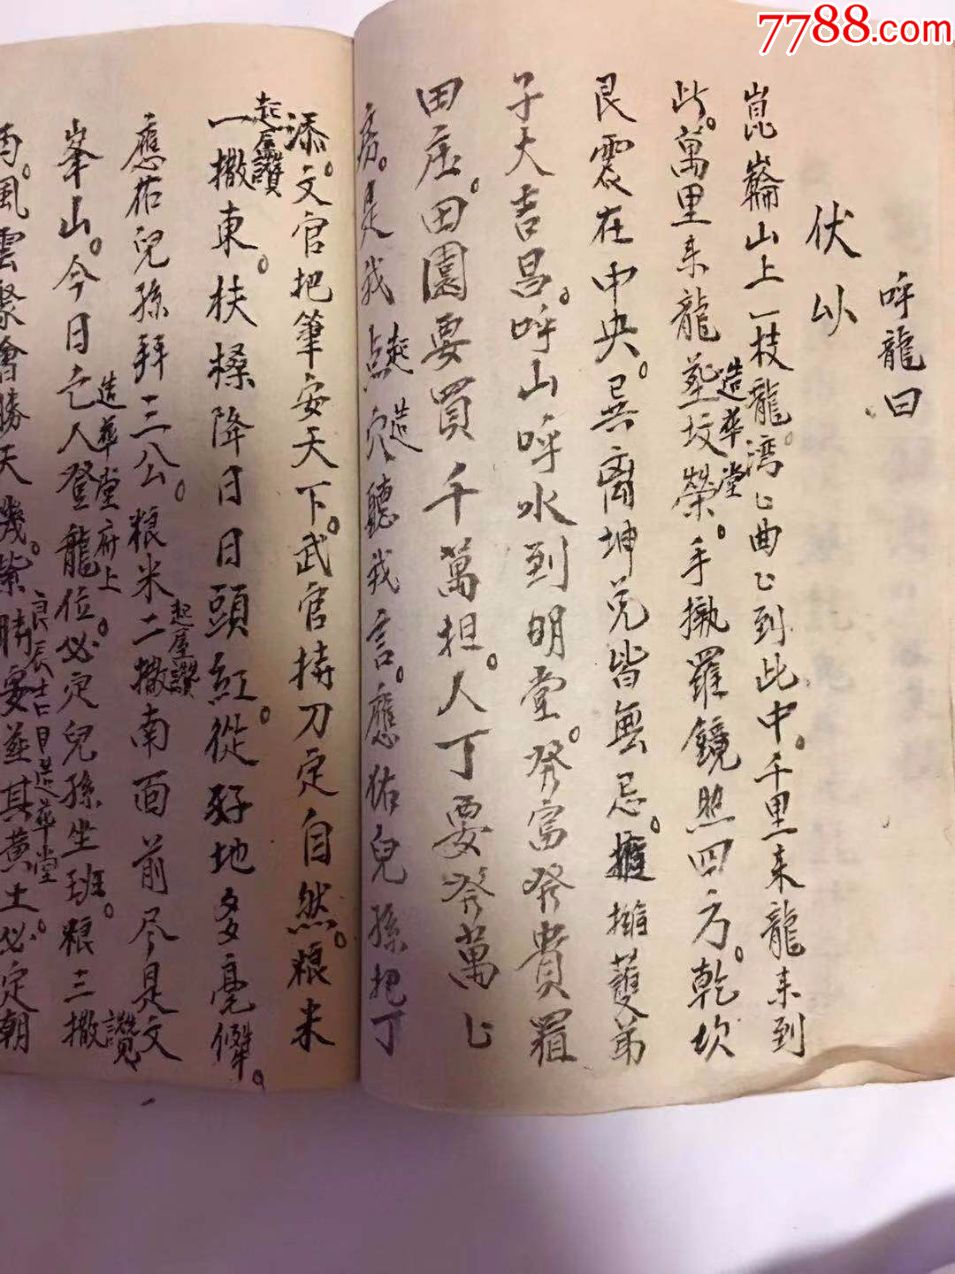 7788.com
呼龍曰
伏以
崑崙山上一枝龍。湾〻曲〻到此中。千里来龍来到
此。萬里来龍葬坟榮。手執羅鏡照四方。乾坎
造華堂
艮震在中央。巽离坤兑皆無忌。擁擁護弟
子大吉昌。呼山呼水到明堂。發富發貴
田庄。田園要買千萬担。人丁要發萬〻
是我点穴聽我言。應佑兒孫把丁
起造
添。文官把筆安天下。武官持刀定自然。粮米
一撒東。扶桑降日日頭紅。從好地多
起屋讚
應佑兒孫拜三公。粮米二撒南面前尽是文
起屋讚
峯山。今日亡人登龍位。必定兒孫坐班。粮三撒
造華堂府上
讚
雨。風雲聚會勝天幾。葬其黄土必定朝
良辰吉日造華堂